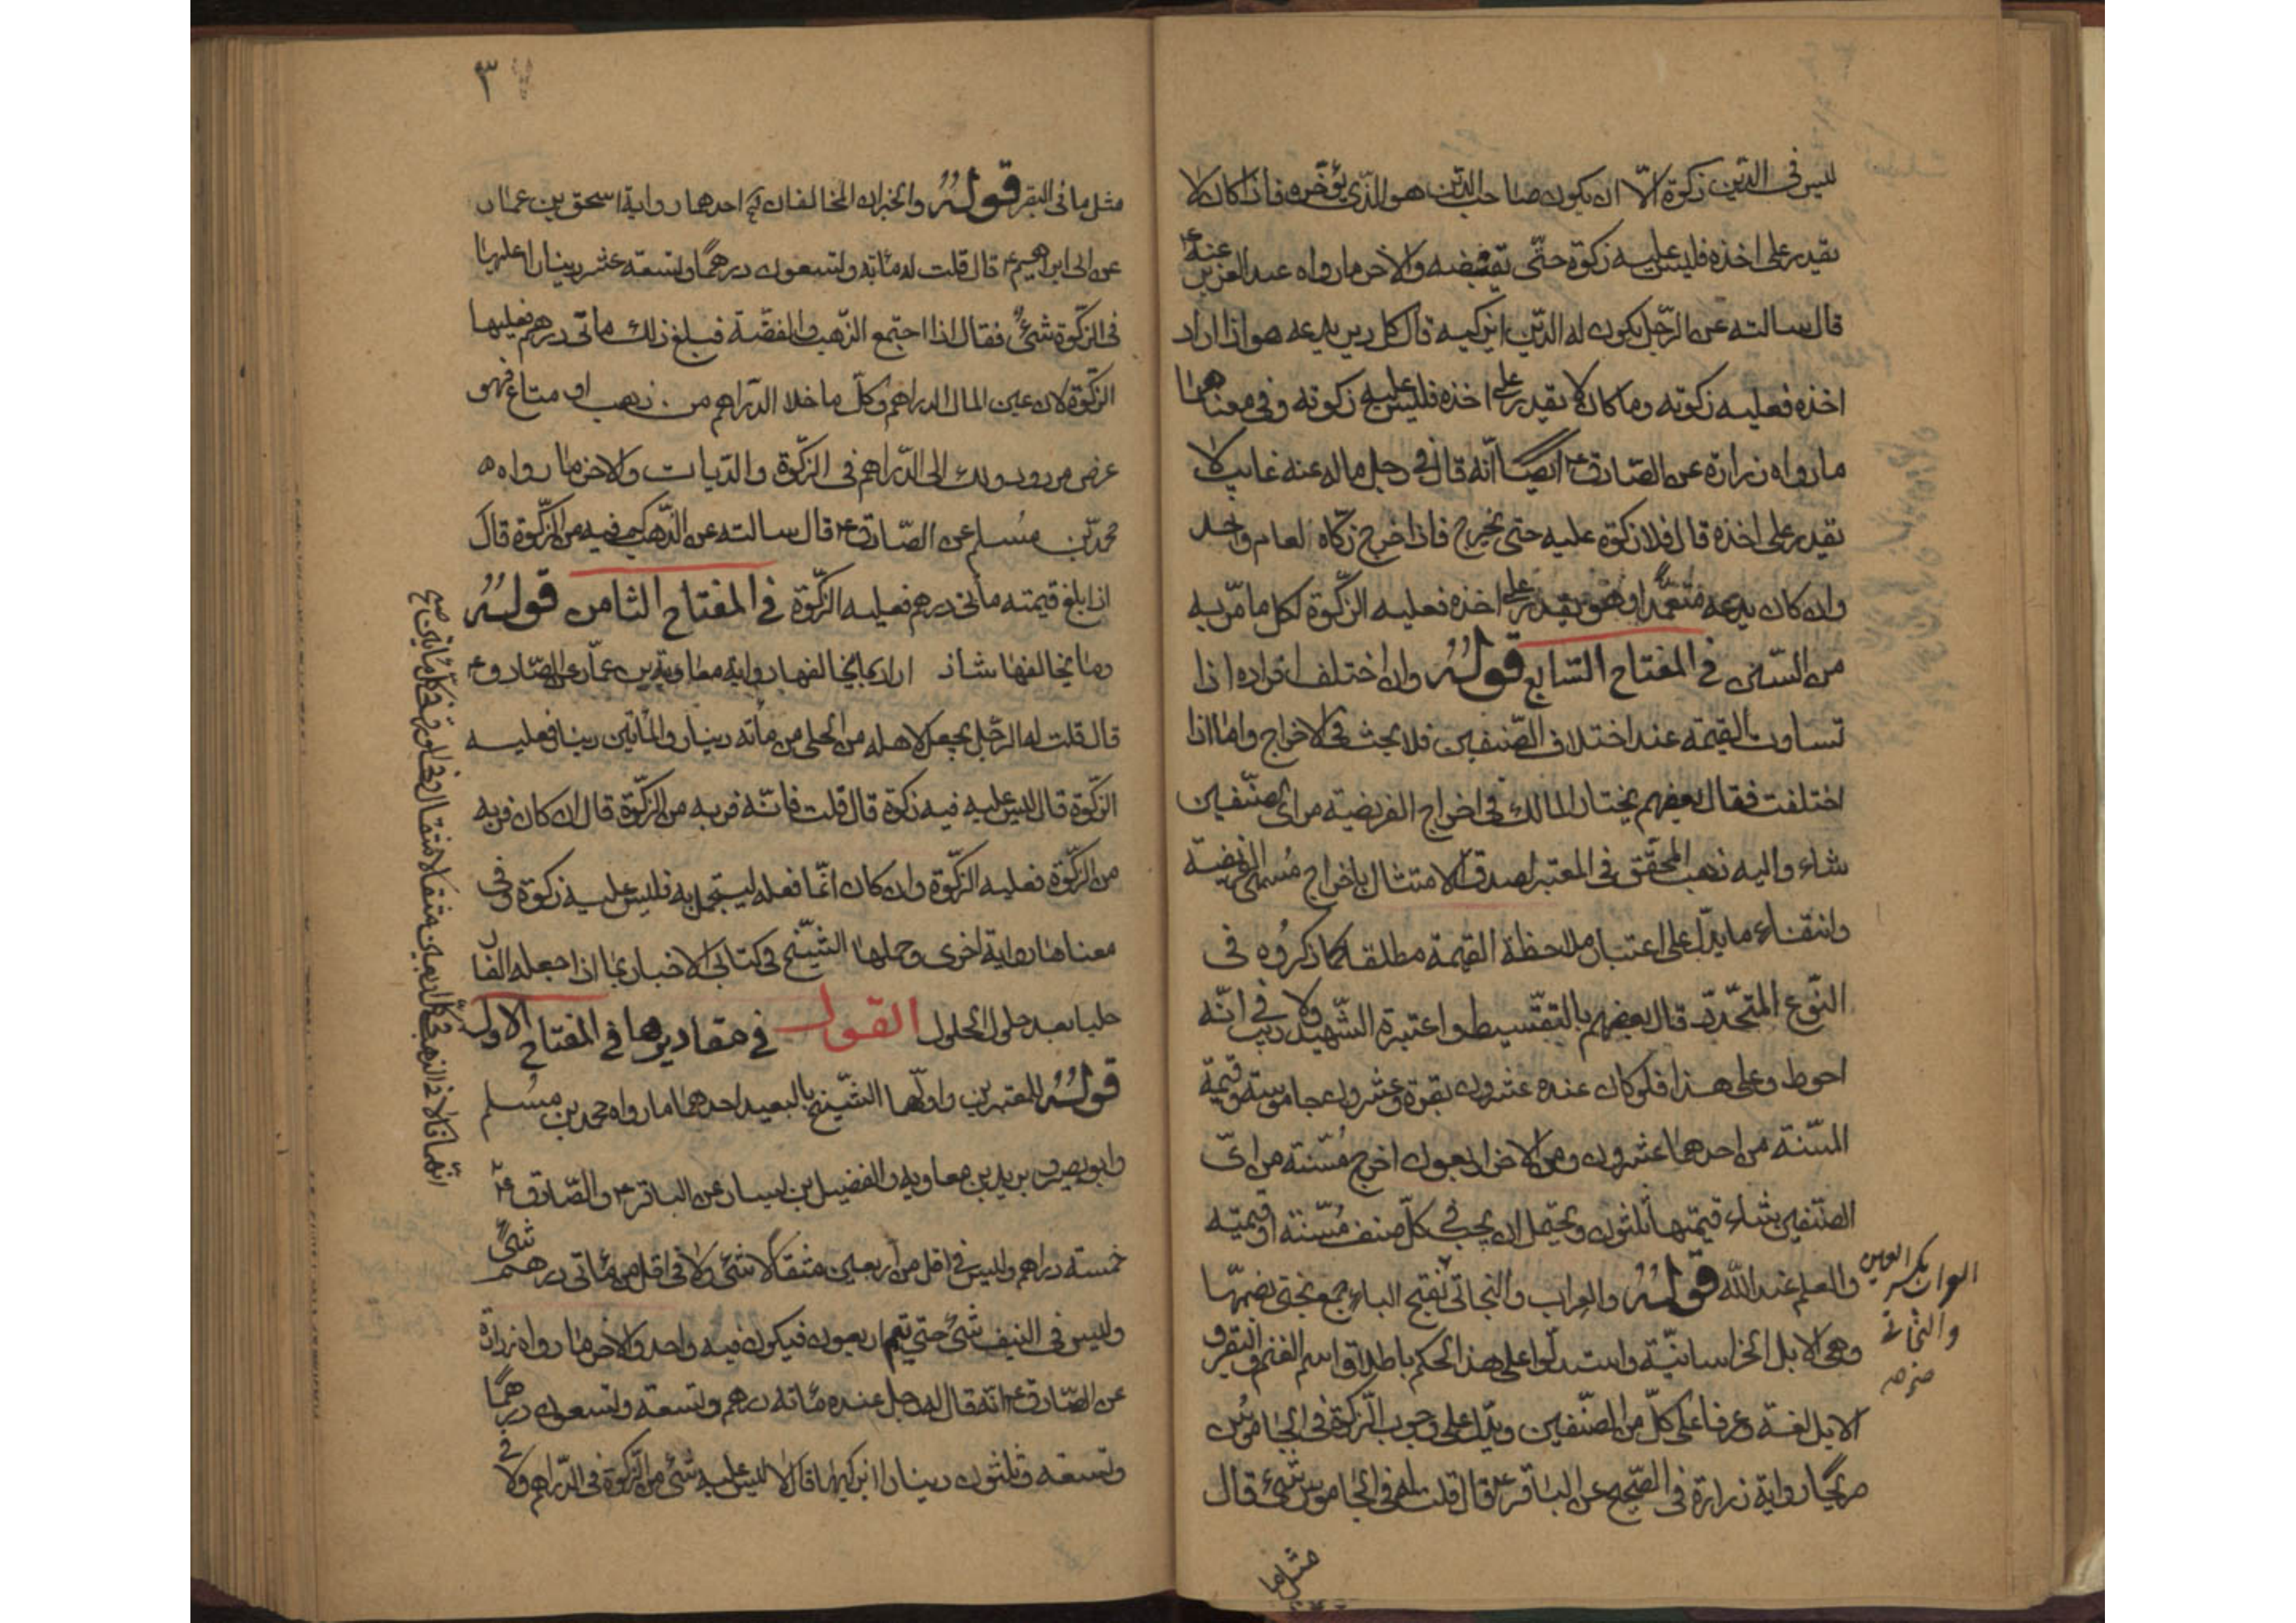 ليس فى الدّين زكوة الّا ان يكون صاحب الدّين هو الّذى يؤخّره فاذا كان لا
يقدر على اخذه فليس عليه زكوة حتّى يقبضه والاخر مارواه عبد العزيز عنه ع
قال سالته عن الرّجل يكون له الدّين ايزكيه قال كل دين يدعه هو اذا اراد
اخذه فعليه زكوته وما كان لا يقدر على اخذه فليس عليه زكوته وفى معناهما
مارواه زرارة عن الصّادق ع ايضًا انّه قال فى رجل ماله عنه غايب لا
يقدر على اخذه قال فلا زكوة عليه حتى يخرج فاذا خرج زكّاه لعام واحد
وان كان يدعه متعمّدا وهو يقدر على اخذه فعليه الزكّوة لكل ما مرّ به
من السّنين فى المفتاح السّابع قوله وان اختلف افراده اذا
تساوت القيمة عند اختلاف الصّنفين فلا بحث فى الاخراج واما اذا
اختلفت فقال بعضهم يختار المالك فى اخراج الفريضة من اى صنّفين
شاء واليه ذهب المحقّق فى المعتبر لصدق الامتثال باخراج مُسمّى الفريضة
وانتفاء ما يدّل على اعتبار ملاحظة القيمة مطلقا كما ذكرُوه فى
النّوع المتّحد قال بعضهم بالتقّسيط واعتبره الشّهيد ولا ريب فى انّه
احوط وعلى هذا فلو كان عنده عشرون بقرة وعشرون جاموسة وقيمة
المسّنة من احدهما عشرون ومن الاخر اربعون اخرج مُسّنة من اىّ
الصّنفين شاء قيمتها ثلثون ويحتمل ان يجب فى كلّ صنف مُسّنة او قيمته
والعلم عند اللّه قوله والعراب والنجاتى بفتح الباء جمع بختى بضمّها
وهى الابل الخراسانيّة واستدلّوا على هذا الحكم باطلاق اسم الغنم والبقر و
الابل لغة وعرفا على كلّ من الصنّفين ويدّل على وجوب الزّكوة فى الجاموس
صريحًا رواية زرارة فى الصّحيح عن الباقر ع قال قلت له فى الجاموس شئ قال
مثل ما
العراب بكسر العين
والنجاتى
٣
مثل مافى البقر قوله والخبران المخالفان احدهما رواية اسحق بن عمار
عن ابى ابراهيم ع قال قلت له مائة وتسعون درهمًا وتسعة عشر دينارا اعليها
فى الزّكوة شئٌ فقال اذا اجتمع الذّهب والفضّة فبلغ ذلك مأتى درهم فعليها
الزّكوة لان عين المال الدراهم وكلّ ما خلا الدّراهم من ذهب او متاع فهو
عرض مردود ذلك الى الدّراهم فى الزّكوة والدّيات والاخر مارواه
محمّد بن مُسلم عن الصّادق ع قال سالته عن الذّهب كم فيه من الزّكوة قال
اذا بلغ قيمته مأتى درهم فعليه الزّكوة فى المفتاح الثامن قوله
وما يخالفها شاذ اراد بما يخالفها رواية معاوية بن عمّار عن الصّادق ع
قال قلت له الرّجل يجعل لاهله من الحلى من مأئة دينار والمأتين دينار فعليه
الزّكوة قال ليس عليه فيه زكوة قال قلت فانّه فرّ به من الزّكوة قال ان كان فرّ به
من الزّكوة فعليه الزّكوة وان كان انّما فعله ليتجمّل به فليس عليه زكوة وفى
معناها رواية اخرى وحملها الشّيخ فى كتابى الاخبار بما اذا جعله الفارّ
حليا بعد حلول الحلول القول فى مقاديرها فى المفتاح الاول
قوله للمعتبرين واوّلها الشّيخ بالبعيد احدهما مارواه محمّد بن مسُلم
وابو بصير و بريد بن معاويه والفضيل بن يسار عن الباقر ع والصّادق ع
خمسة دراهم وليس فى اقل من اربعين مثقالا شئ ولا فى اقل من مأتى درهم شئ
وليس فى النيف شئ حتى يتم اربعون فيكون فيه واحد والاخر مارواه زرارة
عن الصّادق ع انّه قال له رجل عنده مأئة درهم وتسعة وتسعون درهمًا
وتسعة وثلثون دينارا ايزكيها قال لا ليس عليه شئ من الزّكوة فى الدّراهم ولا فى
انّهما قالا فى الذهب فى كل اربعين مثقالا مثقال وفى الورق فى كل مأتين صح